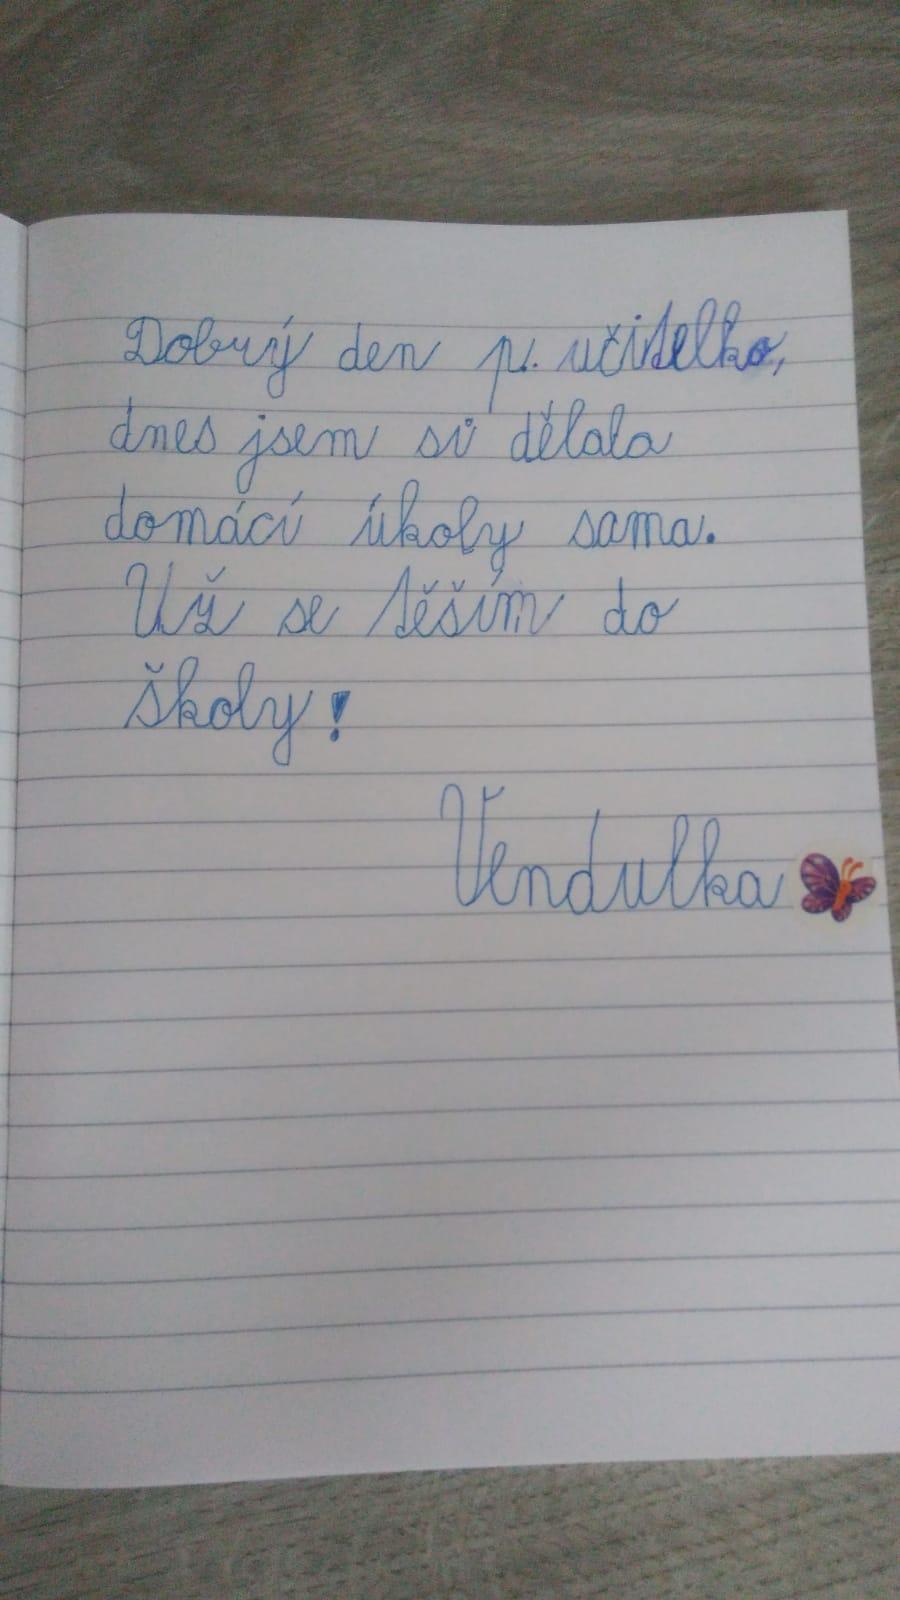 Dobrý den p. učitelko,
dnes jsem si dělala
domácí úkoly sama.
Už se těším do
školy!
Vendulka